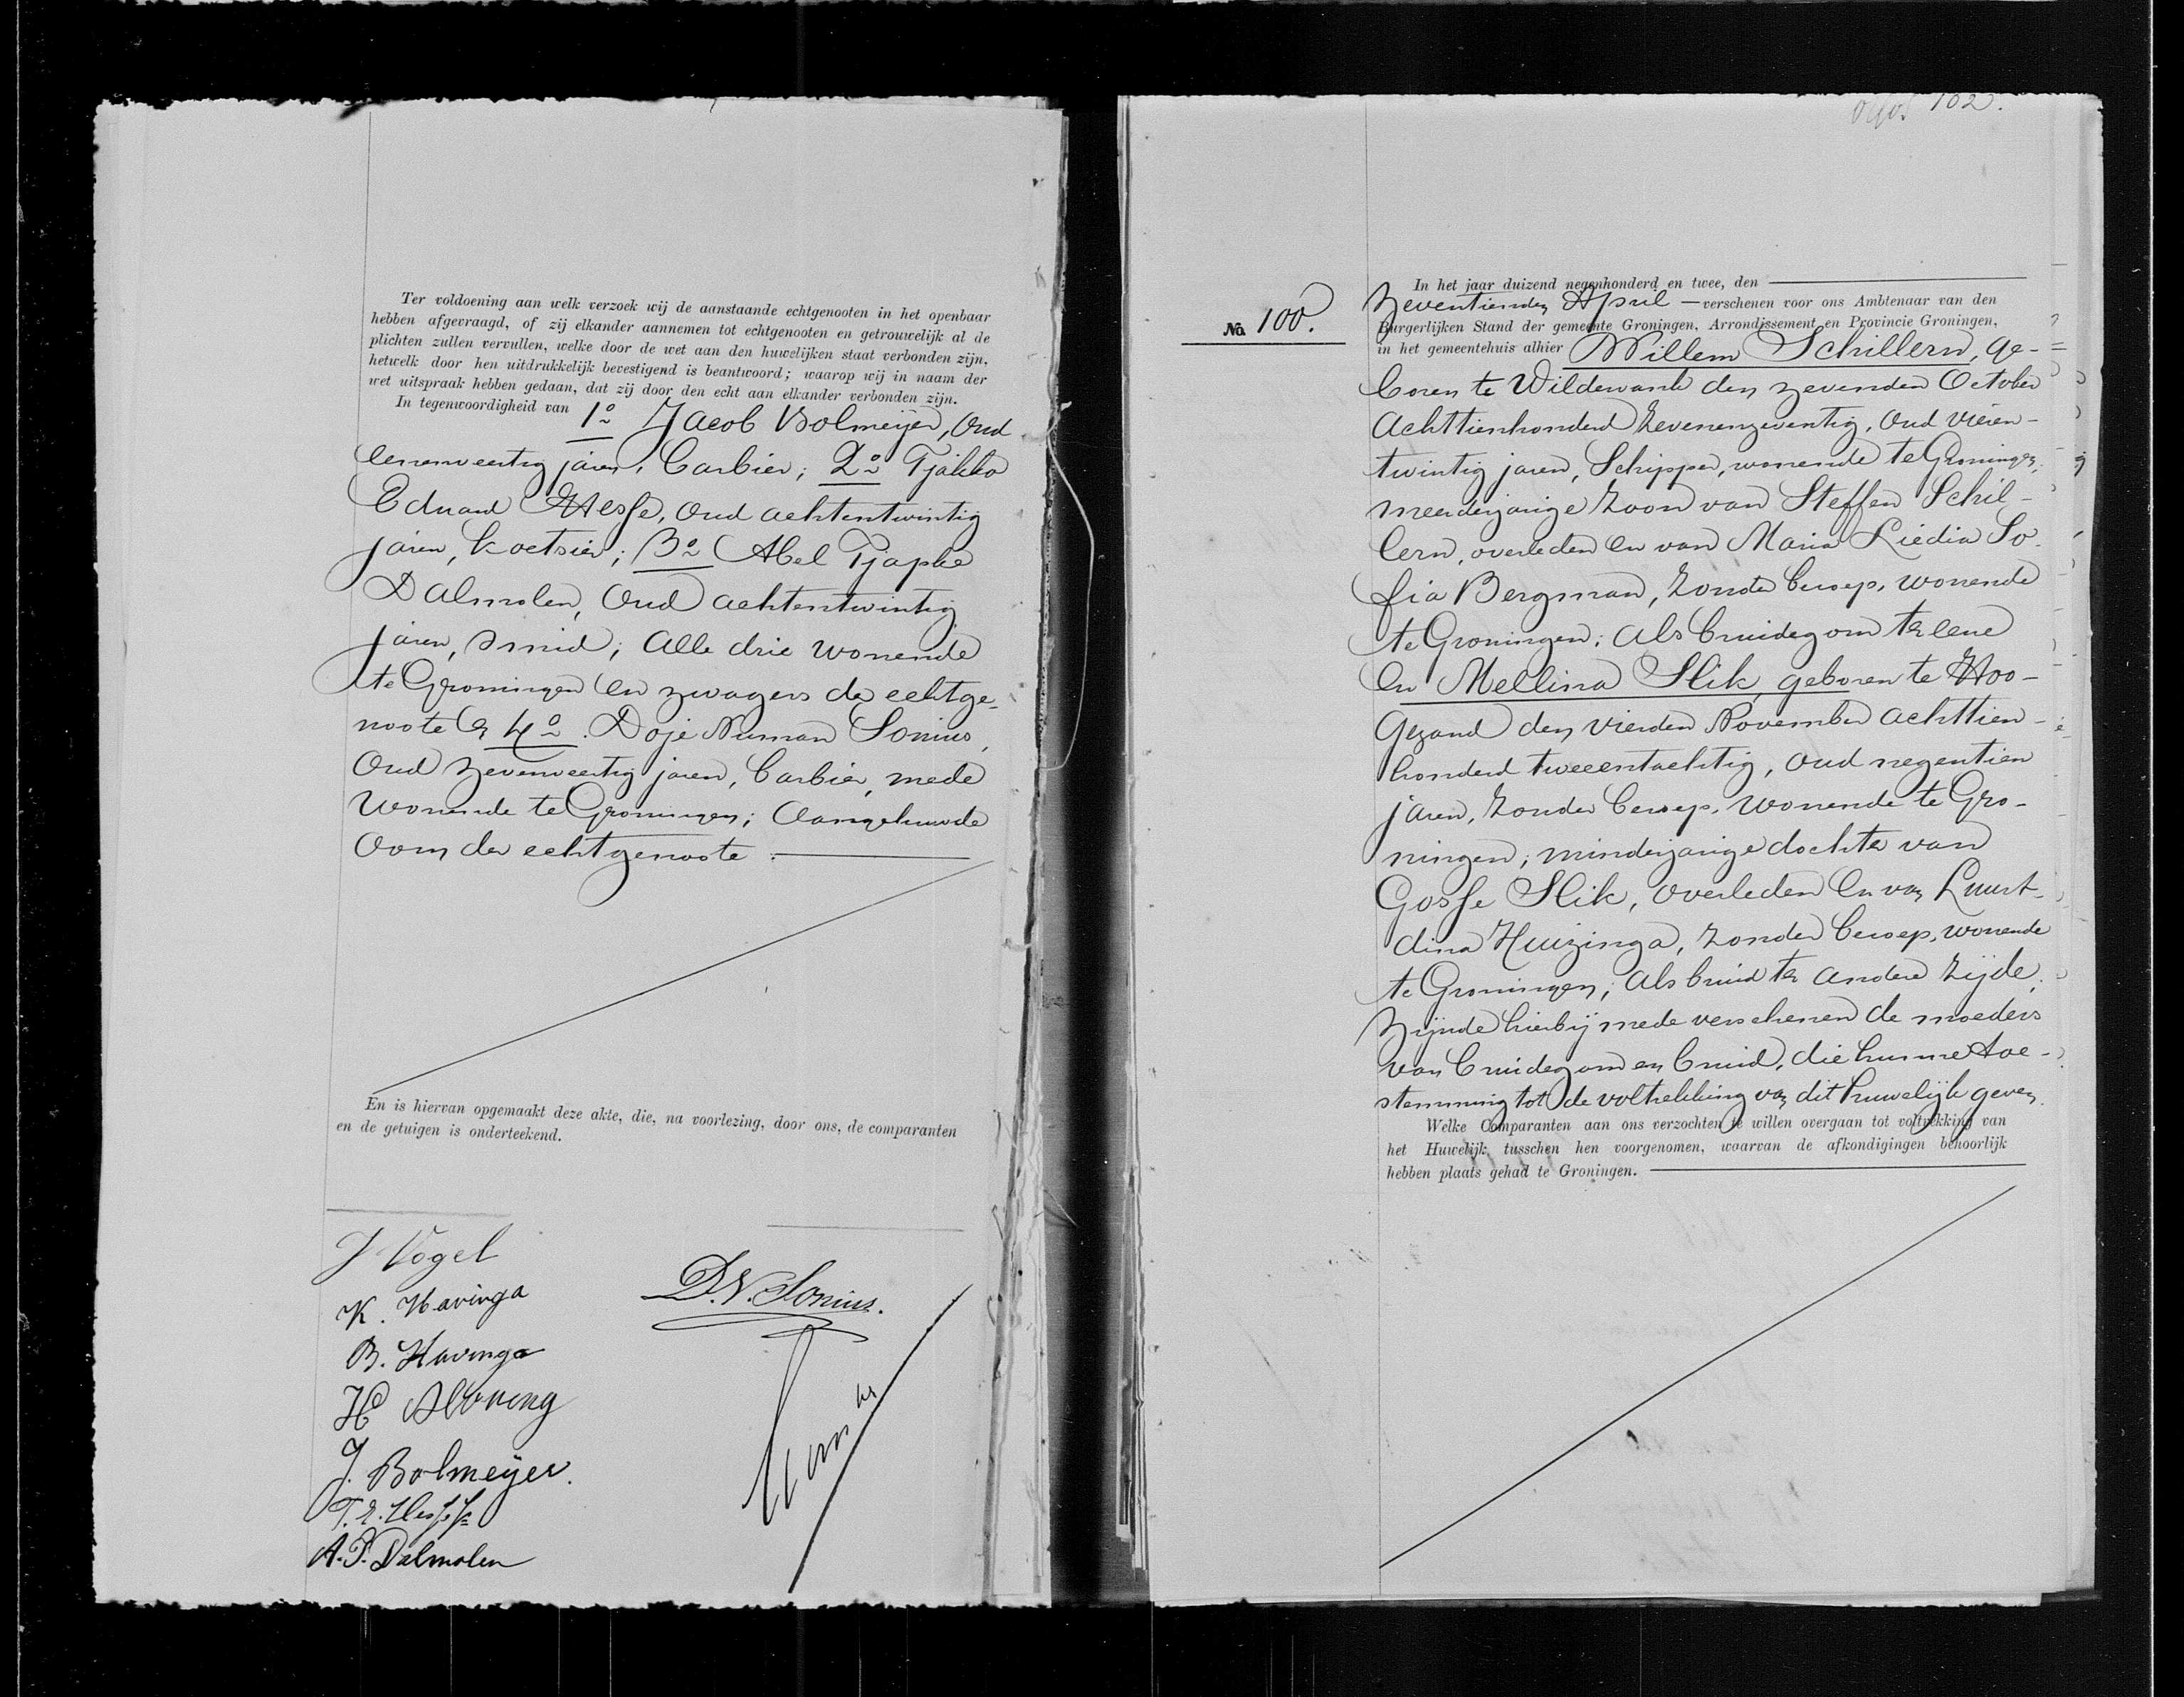 Ter voldoening aan welk verzoek wij de aanstaande echtgenooten in het openbaar
hebben afgevraagd, of zij elkander aannemen tot echtgenooten en getrouwelijk al de
plichten zullen vervullen, welke door de wet aan den huwelijken staat verbonden zijn,
hetwelk door hen uitdrukkelijk bevestigend is beantwoord; waarop wij in naam der
wet uitspraak hebben gedaan, dat zij door den echt aan elkander verbonden zijn.
In tegenwoordigheid van 1o Jacob Bolmeijer, oud
eenenveertig jaren, barbier; 2o Tjakko
Eduard Hesse, oud achtentwintig
jaren, koetsier; 3o Abel Tjapko
Dalmolen, oud achtentwintig
jaren, smid; alle drie wonende
te Groningen en zwagers der echtge-
noote en 4o Doje Numan Sonius,
oud zevenveertig jaren, barbier, mede
wonende te Groningen; aangehuwde
oom der echtgenoote.
En is hiervan opgemaakt deze akte, die, na voorlezing, door ons, de comparanten
en de getuigen is onderteekend.
J Vogel
K. Havinga
B. Havinga
H
J. Bolmeijer.
T. E. Hesse
A. T. Dalmolen
D.N. Sonius.
102.
No. 100.
In het jaar duizend negenhonderd en twee, den
zeventienden April verschenen voor ons Ambtenaar van den
Burgerlijken Stand der gemeente Groningen, Arrondissement en Provincie Groningen,
in het gemeentehuis alhier Willem Schillern, ge-
boren te Wildervank den zevenden October
achttienhonderd zevenenzeventig, oud vieren-
twintig jaren, Schipper, wonende te Groningen,
meerderjarige zoon van Steffen Schil-
lern, overleden en van Maria Liedia So-
fia Bergman, zonder beroep, wonende
te Groningen; als bruidegom ter eene
en Mellina Slik, geboren te Hoo-
gezand den vierden November achttien-
honderd tweeentachtig, oud negentien
jaren, zonder beroep, wonende te Gro-
ningen; minderjarige dochter van
Gosse Slik, overleden en van Luurt-
dina Huizinga, zonder beroep, wonende
te Groningen; als bruid ter andere zijde,
zijnde hierbij mede verschenen de moeders
van bruidegom en bruid, die hunne toe-
stemming tot de voltrekking van dit huwelijk geven.
Welke Comparanten aan ons verzochten te willen overgaan tot voltrekking van
het Huwelijk tusschen hen voorgenomen, waarvan de afkondigingen behoorlijk
hebben plaats gehad te Groningen.